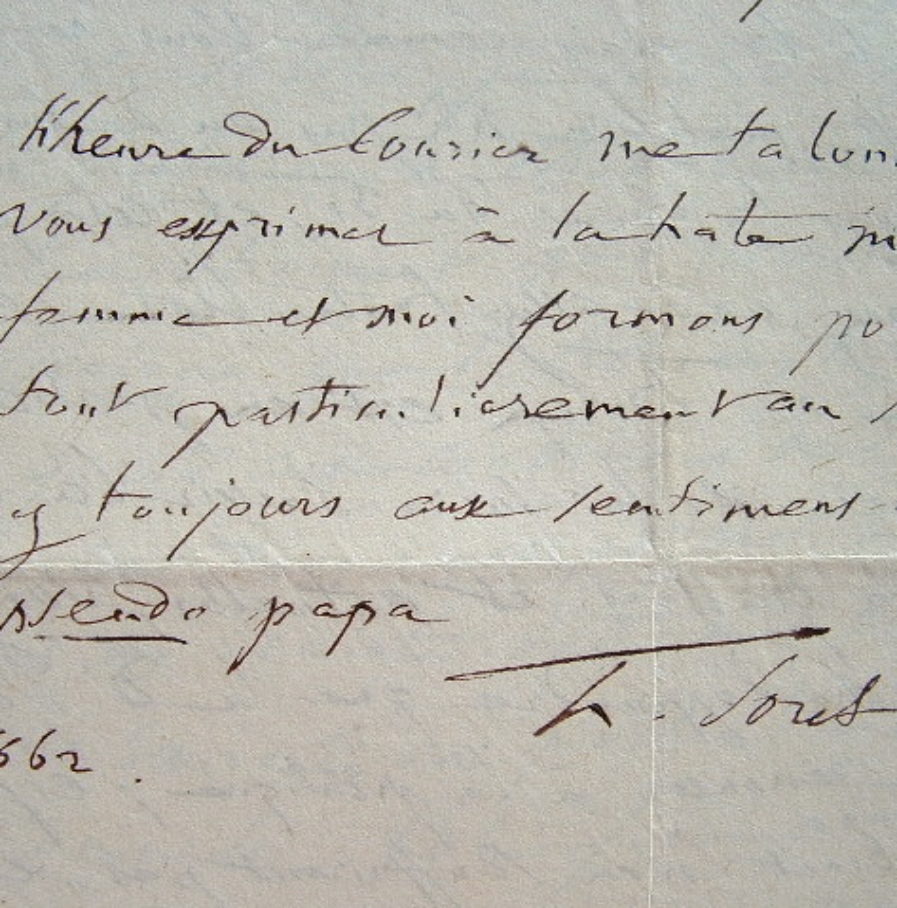 l'heure du Courier me talonne
vous exprimer à la hate
femme et moi formons
tout particulierement au
toujours aux sentimens
papa
662.